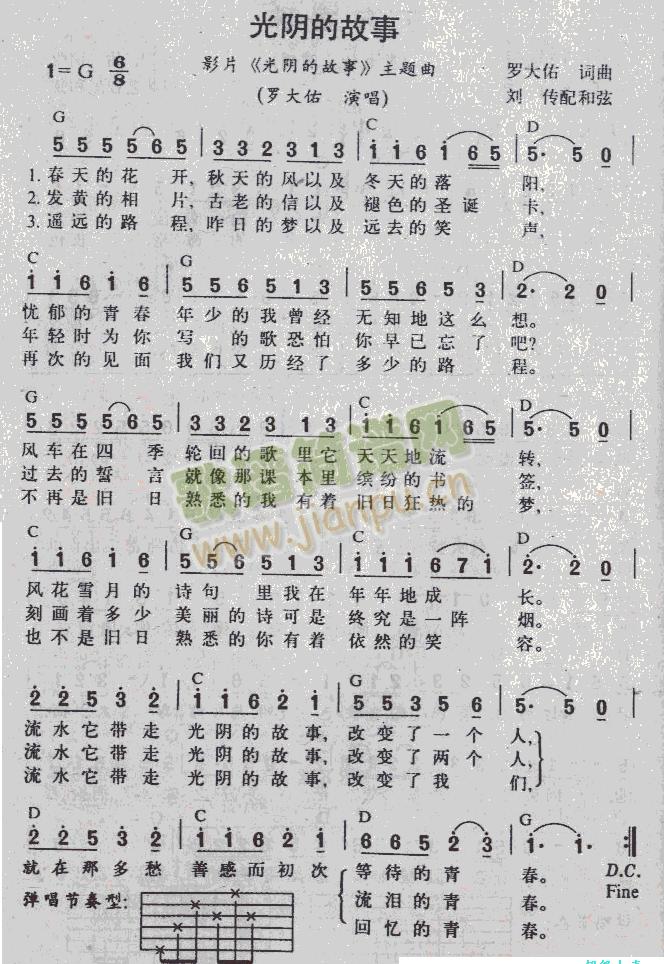 光阴的故事
1=G 6/8
影片《光阴的故事》主题曲
(罗大佑 演唱)
罗大佑 词曲
刘 传配和弦
G C D
5 5 5 5 6 5 | 3 3 2 3 1 3 | i i 6 i 6 5 | 5· 5 0 |
1.春天的花 开,秋天的风以及 冬天的落 阳,
2.发黄的相 片,古老的信以及 褪色的圣诞 卡,
3.遥远的路 程,昨日的梦以及 远去的笑 声,
C G D
i i 6 i 6 | 5 5 6 5 1 3 | 5 5 6 5 3 | 2· 2 0 |
忧郁的青春 年少的我曾经 无知地这么 想。
年轻时为你 写 的歌恐怕 你早已忘了 吧?
再次的见面 我们又历经了 多少的路 程。
G C D
5 5 5 5 6 5 | 3 3 2 3 1 3 | i i 6 i 6 5 | 5· 5 0 |
风车在四 季 轮回的歌 里它 天天地流 转,
过去的誓 言 就像那课 本里 缤纷的书 签,
不再是旧 日 熟悉的我 有着 旧日狂热的 梦,
C G C D
i i 6 i 6 | 5 5 6 5 1 3 | i i i 6 7 i | 2· 2 0 |
风花雪月的 诗句 里我在 年年地成 长。
刻画着多少 美丽的诗可是 终究是一阵 烟。
也不是旧日 熟悉的你有着 依然的笑 容。
D C G
2 2 5 3 2 | i i 6 2 i | 5 5 3 5 6 | 5· 5 0 |
流水它带走 光阴的故事, 改变了一个 人,
流水它带走 光阴的故事, 改变了两个 人,
流水它带走 光阴的故事, 改变了我 们,
D C D G
2 2 5 3 2 | i i 6 2 i | 6 6 5 2 3 | i· i· :||
就在那多愁 善感而初次 等待的青 春。 D.C.
弹唱节奏型: 流泪的青 春。 Fine
回忆的青 春。
歌谱简谱网
www.jianpu.cn